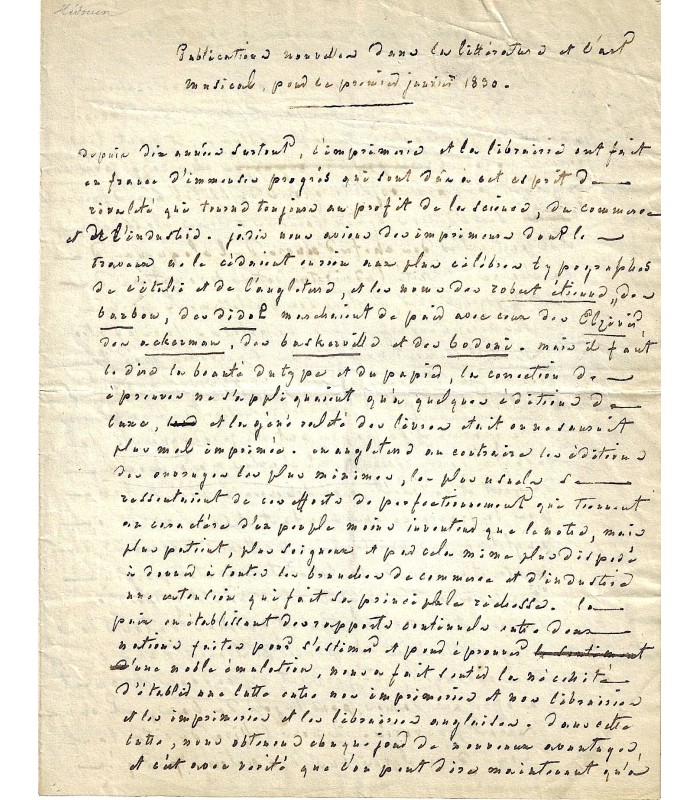 Hédouin
Publications nouvelles dans la littérature et l'art
musical, pour le premier janvier 1830.
depuis dix années surtout, l'imprimerie et la librairie ont fait
en france d'immenses progrès qui sont dûs à cet esprit de
rivalité qui tourne toujours au profit de la science, du commerce
et de l'industrie. jadis nous avions des imprimeurs dont les
travaux ne le cédaient en rien aux plus célèbres typographes
de l'italie et de l'angleterre, et les noms des robert étienne, des
barbou, des didot marchaient de pair avec ceux des Elzévir,
des ackerman, des baskerville et des bodoni. mais il faut
le dire la beauté du type et du papier, la correction des
épreuves ne s'appliquaient qu'à quelques éditions de
luxe, et la généralité des livres était on ne saurait
plus mal imprimée. en angleterre au contraire les éditions
des ouvrages les plus minimes, les plus usuels se
ressentaient de ces efforts de perfectionnement qui tiennent
au caractère d'un peuple moins inventeur que le notre, mais
plus patient, plus soigneux et par cela même plus disposé
à donner à toutes les branches de commerce et d'industrie
une extension qui fait sa principale richesse. la
paix en établissant des rapports continuels entre deux
nations faites pour s'estimer et pour éprouver le sentiment
d'une noble émulation, nous a fait sentir la nécessité
d'établir une lutte entre nos imprimeries et nos librairies
et les imprimeries et les librairies anglaises. dans cette
lutte, nous obtenons chaque jour de nouveaux avantages,
et c'est avec vérité que l'on peut dire maintenant qu'à